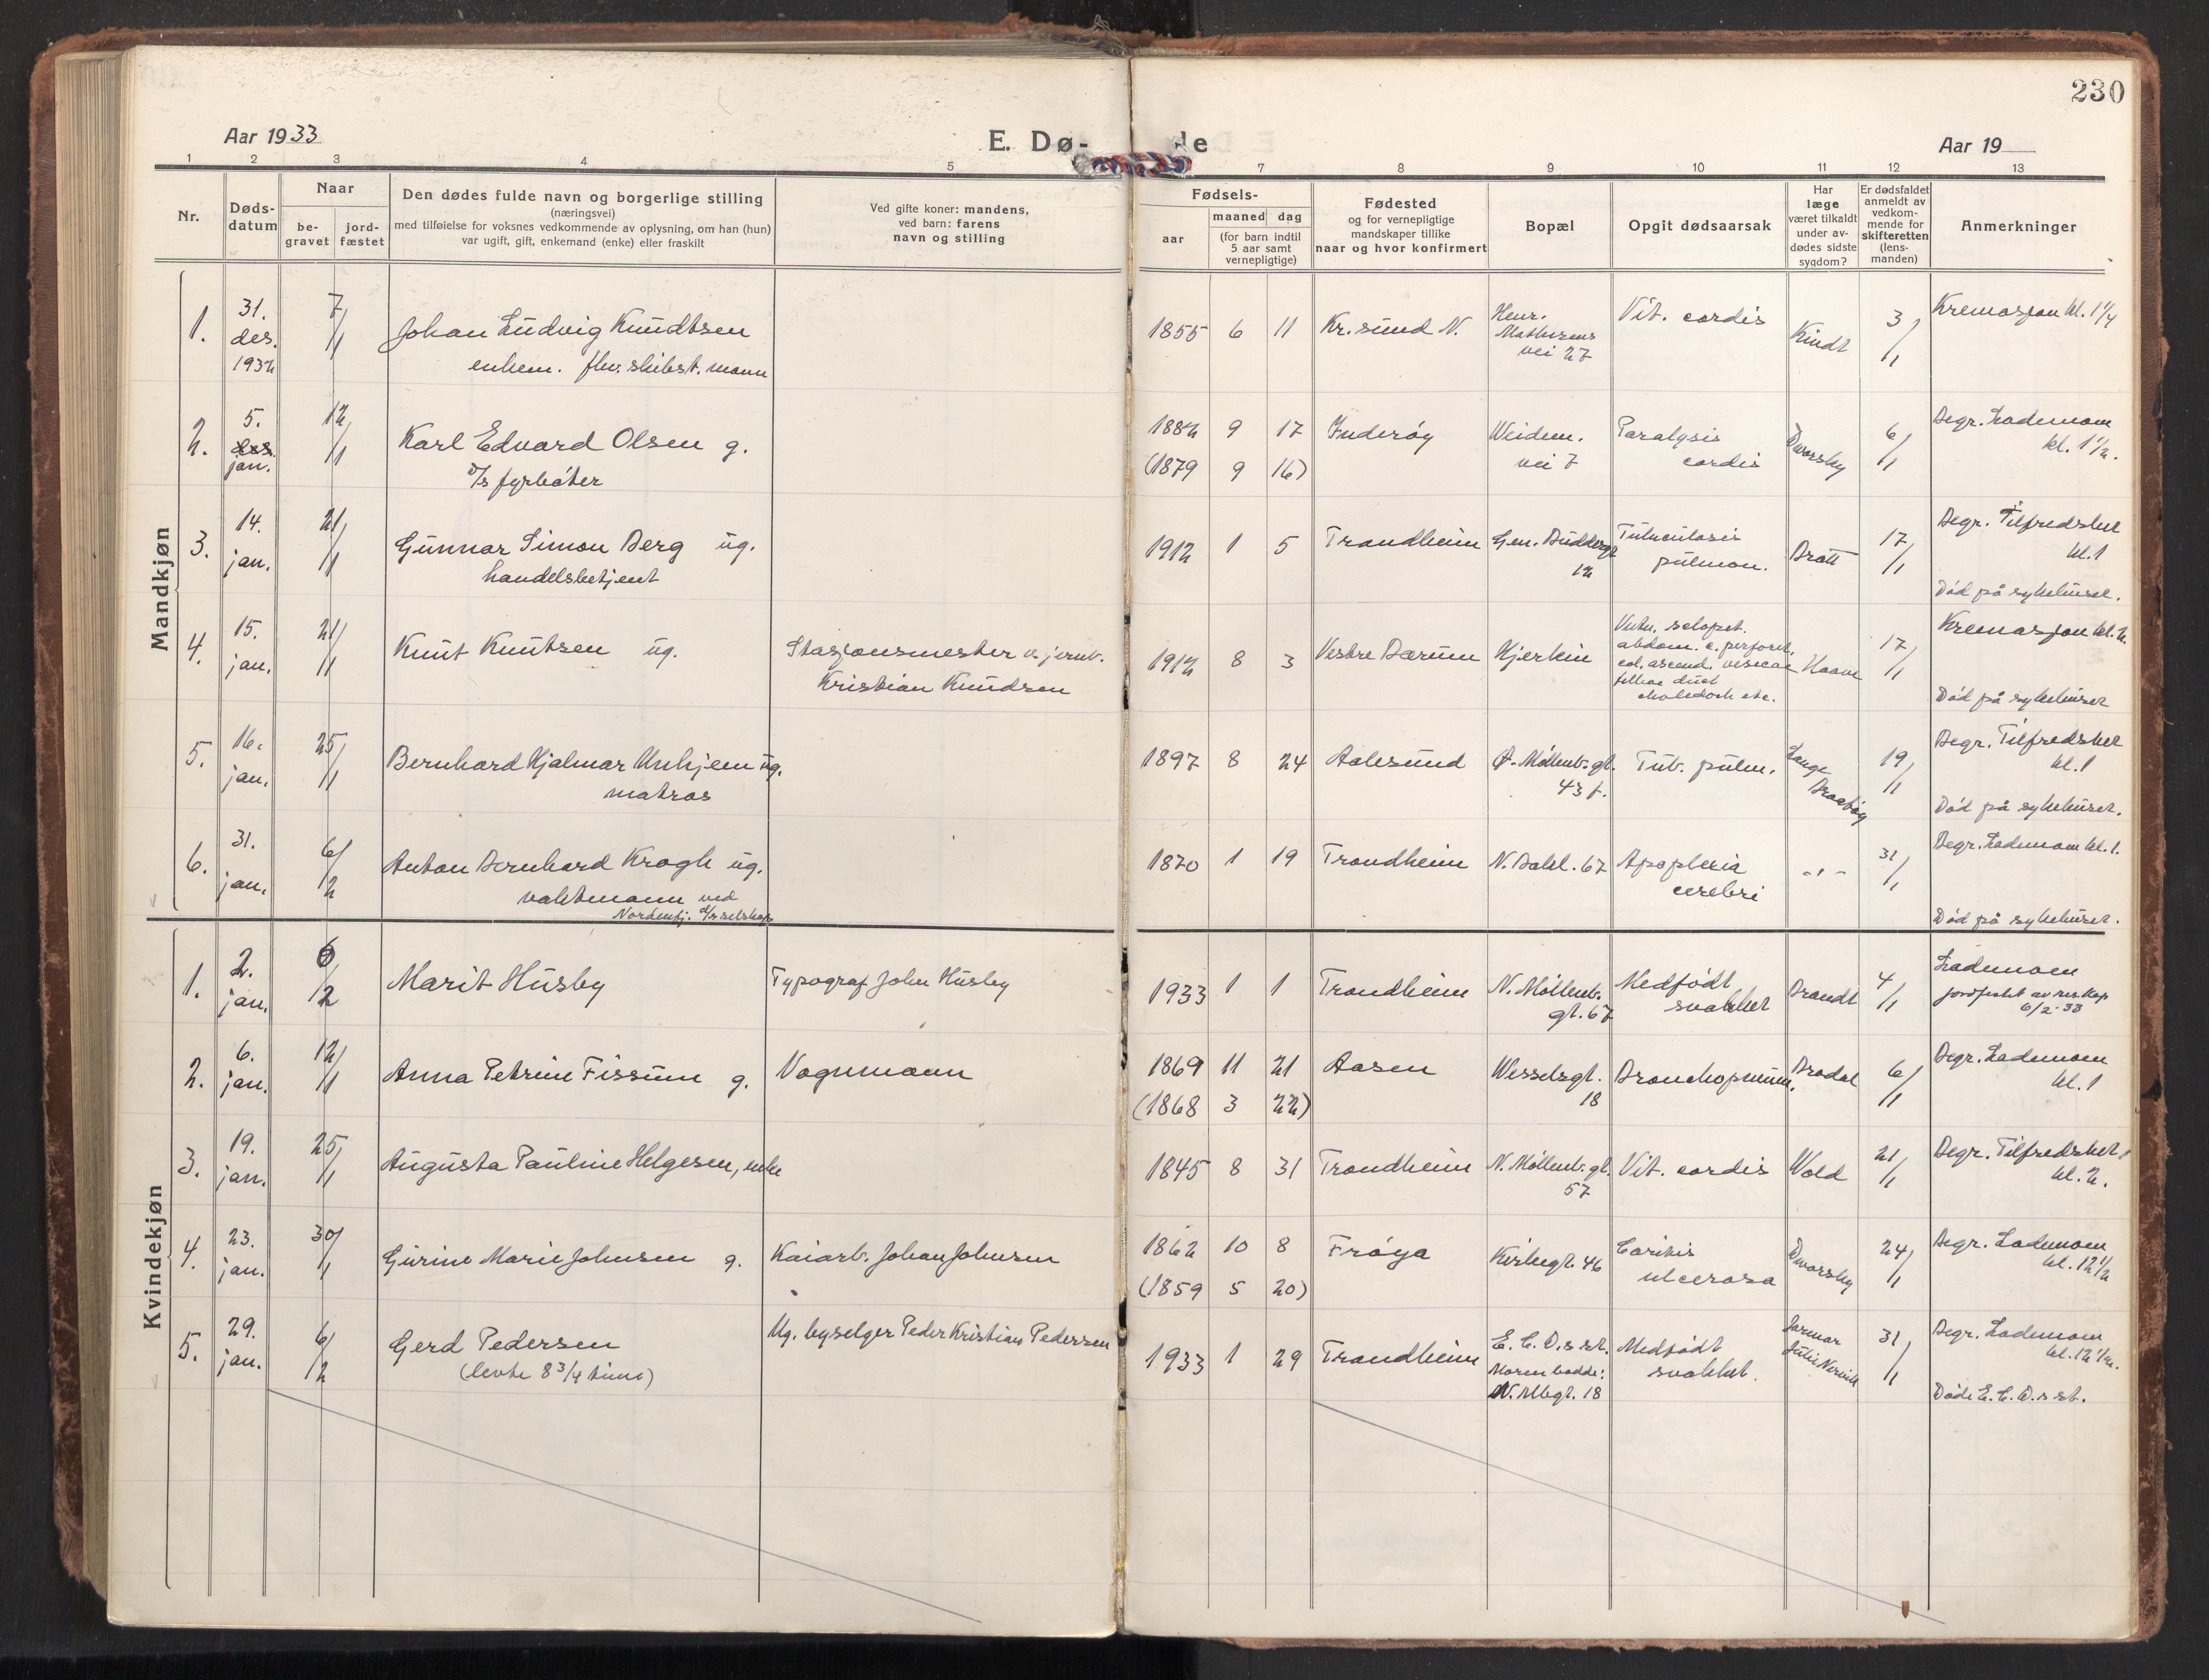 230
Aar 1933
E. Dø-
de
Aar 19
1 2 3 4 5 7 8 9 10 11 12 13
Nr.
Døds-
datum
Naar
be-
gravet
jord-
fæstet
Den dødes fulde navn og borgerlige stilling
(næringsvei)
med tilføielse for voksnes vedkommende av oplysning, om han (hun)
var ugift, gift, enkemand (enke) eller fraskilt
Ved gifte koner: mandens,
ved barn: farens
navn og stilling
Fødsels-
aar
maaned dag
(for barn indtil
5 aar samt
vernepligtige)
Fødested
og for vernepligtige
mandskaper tillike
naar og hvor konfirmert
Bopæl
Opgit dødsaarsak
Har
læge
været tilkaldt
under av-
dødes sidste
sygdom?
Er dødsfaldet
anmeldt av
vedkom-
mende for
skifteretten
(lens-
manden)
Anmerkninger
Mandkjøn
1. 31. des. 1932 7/1 Johan Ludvig Knudtsen
enkem. fhv. skibst. mann
1855 6 11 Kr.sund N. Henr. Mathisens vei 27 Vit. cordis Kindt 3/1 Kremasjon kl. 1 1/4
2. 5. des. jan. 12/1 Karl Edvard Olsen g.
d/s fyrbøter
1882 9 17 Inderøy Weidem. vei 7 Paralysis cordis Dworsky 6/1 Begr. Lademoen kl. 1 1/2.
(1879 9 16)
3. 14. jan. 21/1 Gunnar Simon Berg ug.
handelsbetjent
1912 1 5 Trondheim Gen. Buddesgt 12 Tuberculosis pulmon. Bratt 17/1 Begr. Tilfredshet kl. 1
Død på sykehuset.
4. 15. jan. 21/1 Knut Knutsen ug. Stasjonsmester v. jernb.
Kristian Knudsen
1912 8 3 Vestre Bærum Hjerkin Vuln. sclopet.
abdom. c. perforat.
col. ascend. vesicae
felleae duct
choledoch etc. Haave 17/1 Kremasjon kl. 2
Død på sykehuset
5. 16. jan. 25/1 Bernhard Hjalmar Unhjem ug.
matros
1897 8 24 Aalesund Ø. Møllenb. gt. 43 f. Tub. pulm. Lange 19/1 Begr. Tilfredshet kl. 1
Død på sykehuset.
6. 31. jan. 6/2 Anton Bernhard Krogh ug.
vaktmann ved
Nordenfj. d/s selskap
1870 1 19 Trondheim N. Bakl. 67 Apoplexia cerebri -"- 31/1 Begr. Lademoen kl. 1.
Død på sykehuset.
Kvindekjøn
1. 2. jan. 6/2 Marit Husby Typograf John Husby
1933 1 1 Trondheim N. Møllenb. gt. 67 Medfødt svakhet Brandt 4/1 Lademoen
jordfestet av res. kap
6/2-33
2. 6. jan. 12/1 Anna Petrine Fissum g. Vognmann
1869 11 21 Aasen Wesselsgt. 18 Bronchopneum. Brodal 6/1 Begr. Lademoen kl. 1
(1868 3 22)
3. 19. jan. 25/1 Augusta Pauline Helgesen, enke
1845 8 31 Trondheim N. Møllenb. gt. 57 Vit. cordis Wold 21/1 Begr. Tilfredshet kl. 2.
4. 23. jan. 30/1 Gurine Marie Johnsen g. Kaiarb. Johan Johnsen
1862 10 8 Frøya Kirkegt. 46 ulcerosa Dworsky 24/1 Begr. Lademoen kl. 12 1/2
(1859 5 20)
5. 29. jan. 6/2 Gerd Pedersen
(levte 8 3/4 time)
Ug. byselger Peder Kristian Pedersen
1933 1 29 Trondheim E. C. D.s st.
Moren bodde:
N. Mbgt. 18 Medfødt svakhet. Jormor 31/1 Begr. Lademoen kl. 12 1/2.
Døde E. C. D.s st.